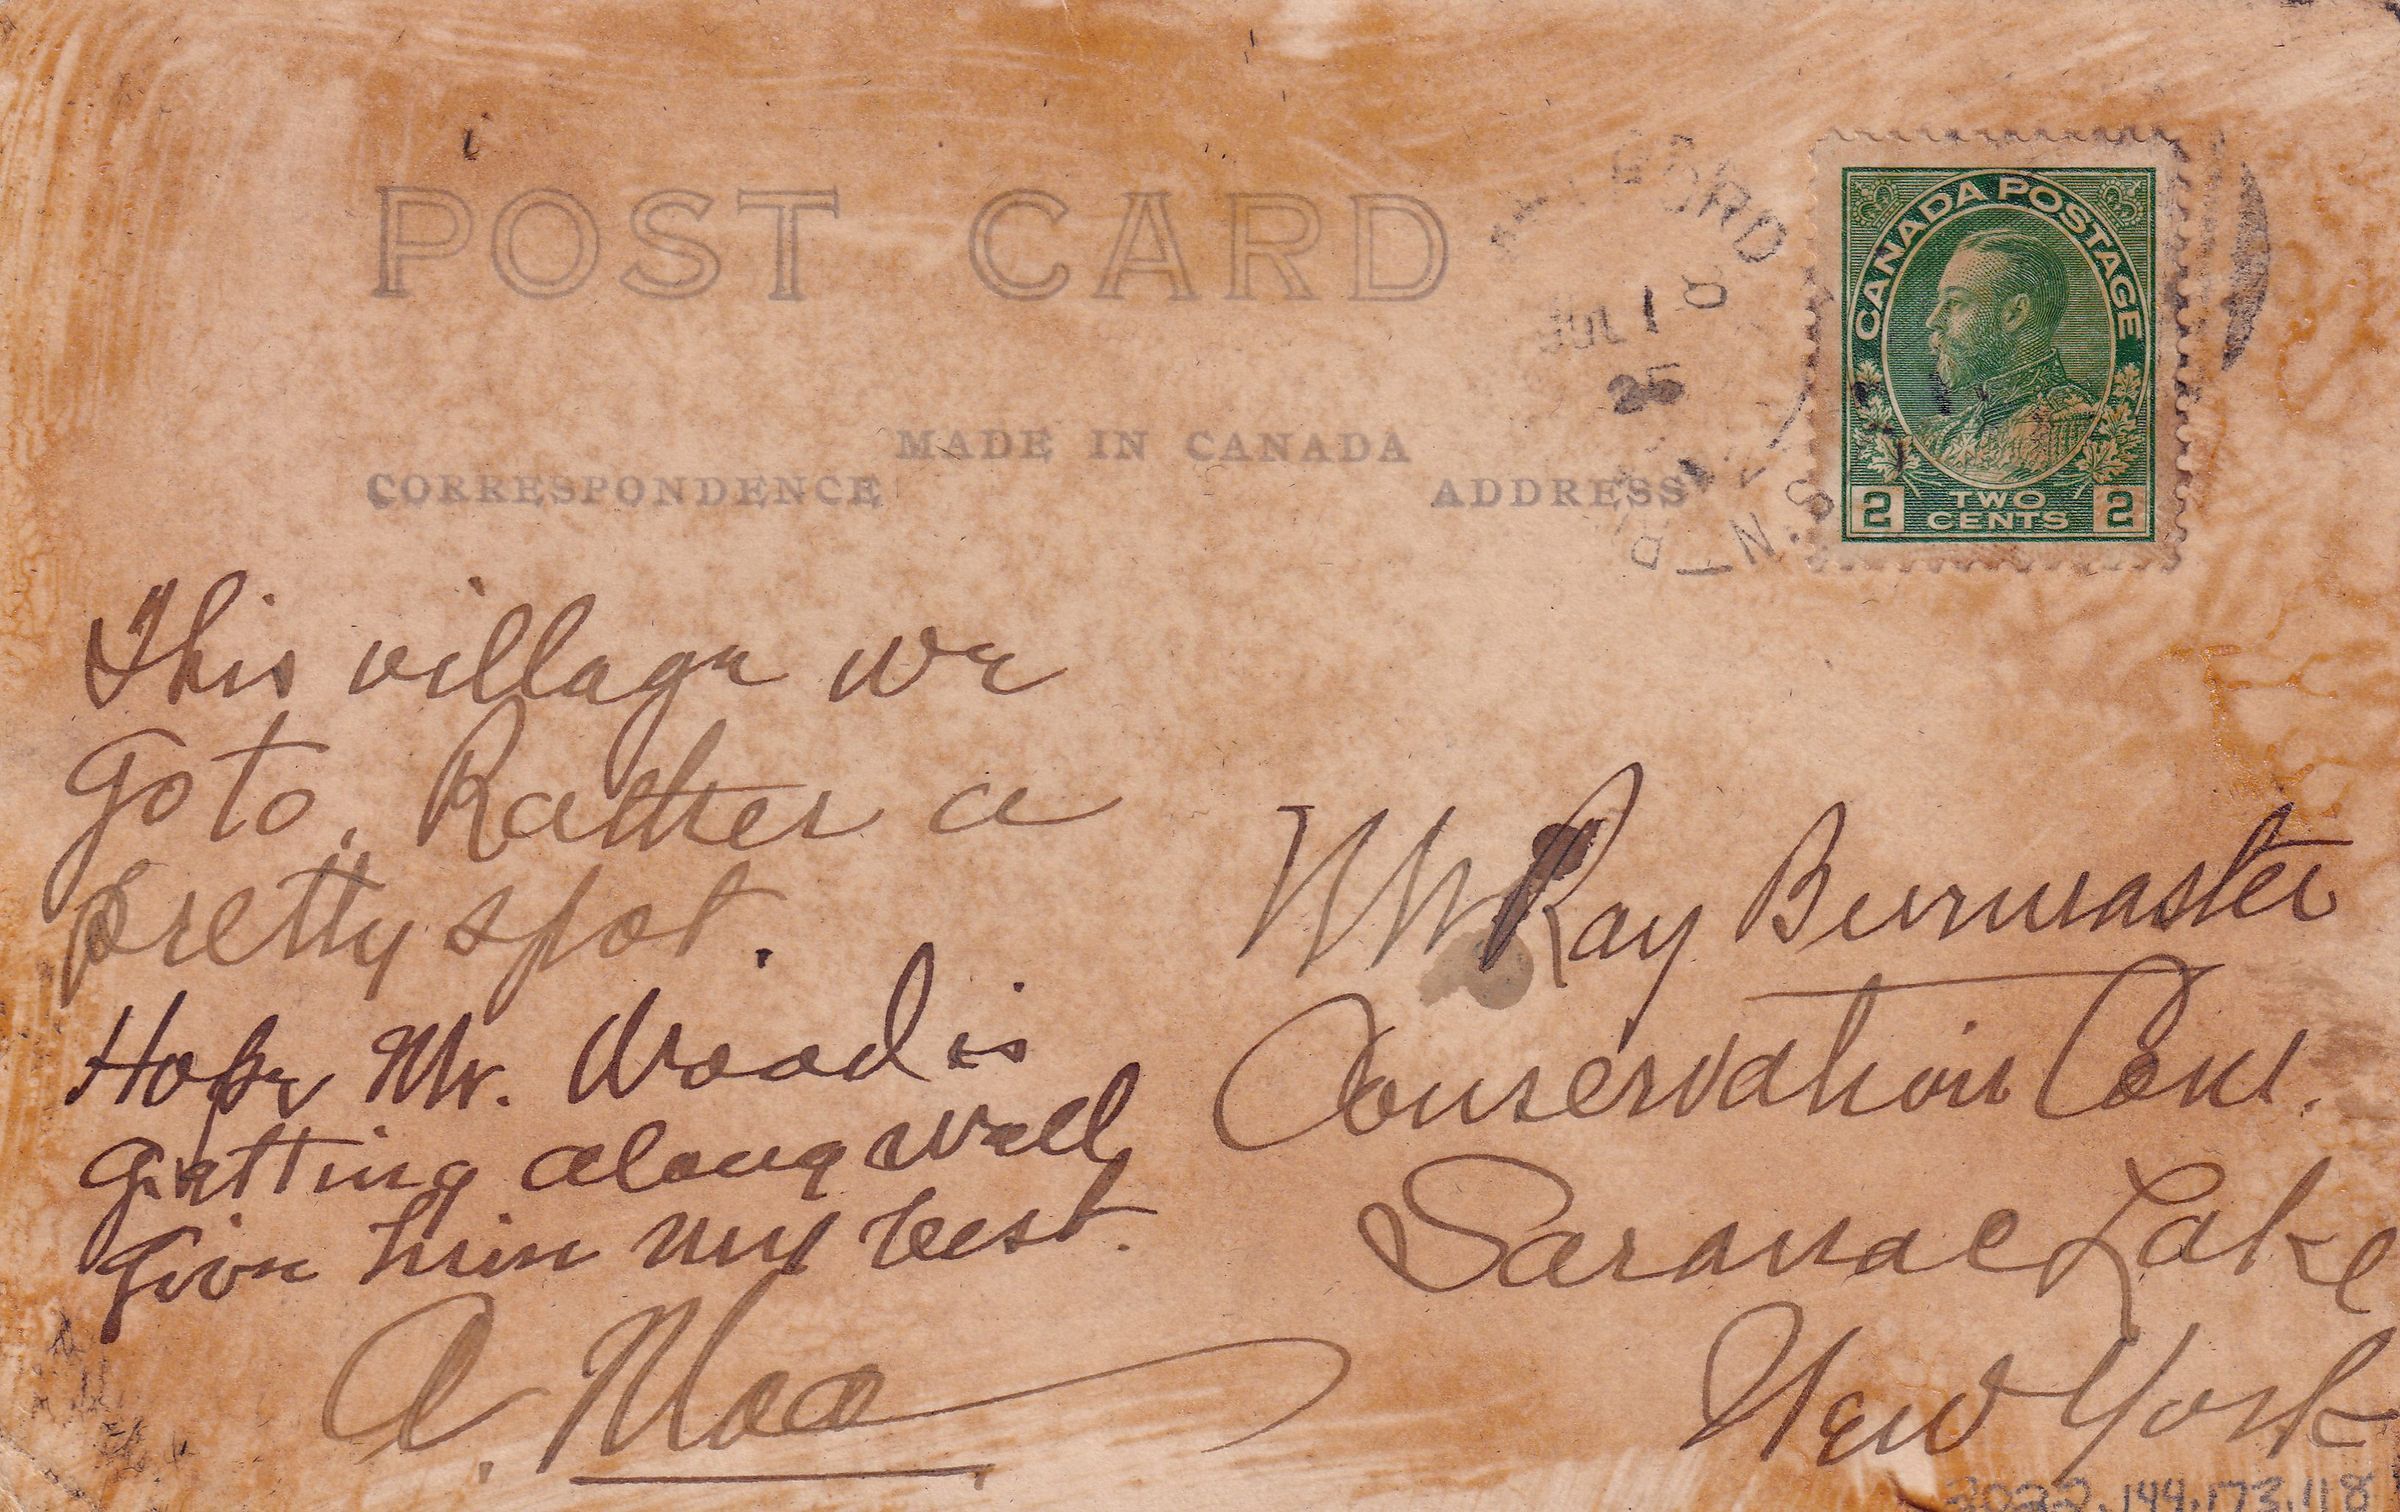 POST CARD
MADE IN CANADA
CORRESPONDENCE
ADDRESS
JUL 18
25
ONT.
CANADA POSTAGE
2 TWO CENTS 2
This village we
go to. Rather a
pretty spot.
Hope Mr. Wood is
getting along well
Give him my best.
Mr Ray Burmaster
Conservation Com.
Saranac Lake
New York
2022.144.173.118